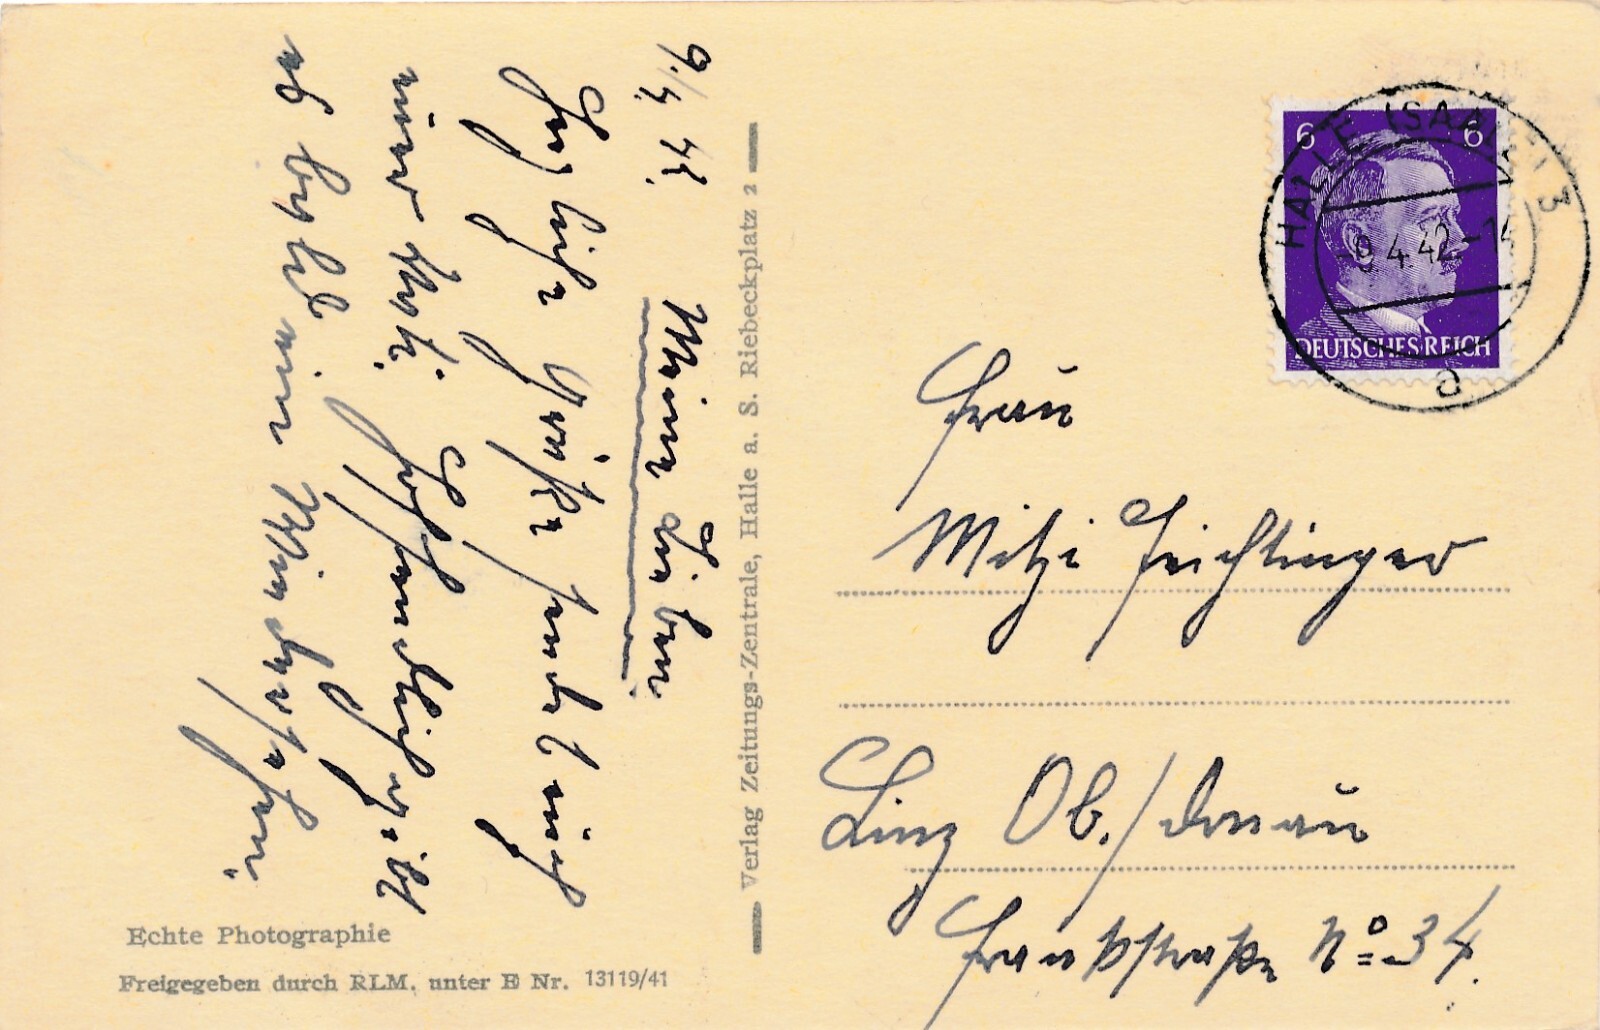 9./4. 42. Meine Lieben!
Herzliche Grüße sendet euch
Hoffentlich gibt
es bald ein Wiedersehen.
Echte Photographie
Freigegeben durch RLM. unter E Nr. 13119/41
Verlag Zeitungs-Zentrale, Halle a. S. Riebeckplatz 2
6 6
DEUTSCHES REICH
HALLE (SAALE) 3
-9.4.42.-14
a
Frau
Mitzi Feichtinger
Linz Ob./Donau
Frankstraße No 34.